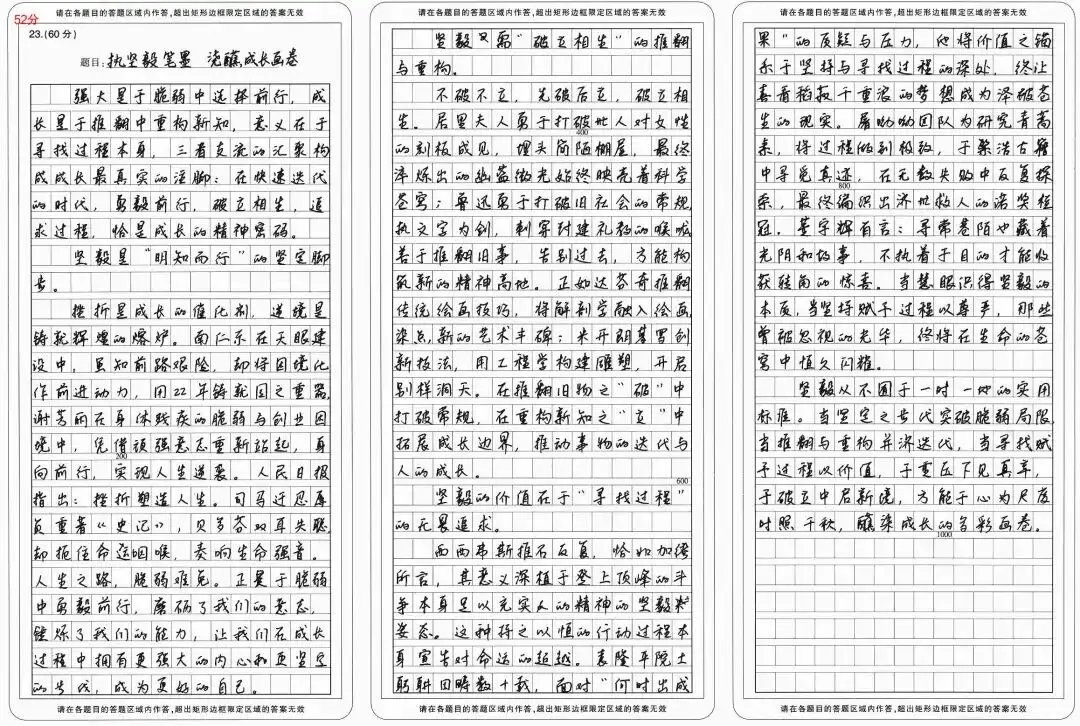 请在各题目的答题区域内作答,超出矩形边框限定区域的答案无效
52分
23.(60分)
题目:执坚毅笔墨 浇醮成长画卷
强大是于脆弱中选择前行,成
长是于推翻中重构新知,意义在于
寻找过程本身,三者支流的汇聚构
成成长最真实的注脚:在快速迭代
的时代,勇毅前行,破立相生,追
求过程,恰是成长的精神密码。
坚毅是“明知而行”的坚定脚
步。
挫折是成长的催化剂,逆境是
铸就辉煌的熔炉。南仁东在天眼建
设中,虽知前路艰险,却将困境化
作前进动力,用22年铸就国之重器,
谢芳丽在身体残疾的脆弱与创业困
境中,凭借顽强意志重新站起,勇
200
向前行,实现人生逆袭。人民日报
指出:挫折塑造人生。司马迁忍辱
负重著《史记》,贝多芬双耳失聪,
却扼住命运咽喉,奏响生命强音。
人生之路,脆弱难免。正是于脆弱
中勇毅前行,磨砺了我们的意志,
锤炼了我们的能力,让我们在成长
过程中拥有更强大的内心和更坚定
的步伐,成为更好的自己。
请在各题目的答题区域内作答,超出矩形边框限定区域的答案无效
请在各题目的答题区域内作答,超出矩形边框限定区域的答案无效
坚毅又需“破立相生”的推翻
与重构。
不破不立,先破后立,破立相
生。居里夫人勇于打破世人对女性
400
的刻板成见,埋头简陋棚屋,最终
淬炼出的幽蓝微光始终映亮着科学
苍穹;鲁迅勇于打破旧社会的常规,
执文字为剑,刺穿封建礼教的喉咙
善于推翻旧事,告别过去,方能构
筑新的精神高地。正如达芬奇推翻
传统绘画技巧,将解剖学融入绘画,
染点新的艺术丰碑;米开朗基罗创
新技法,用工程学构建雕塑,开启
别样洞天。在推翻旧物之“破”中
打破常规,在重构新知之“立”中
拓展成长边界,推动事物的迭代与
人的成长。
600
坚毅的价值在于“寻找过程”
的无畏追求。
西西弗斯推石反复,恰如加缪
所言,其意义深植于登上顶峰的斗
争本身足以充实人的精神的坚毅
姿态。这种持之以恒的行动过程本
身宣告对命运的超越。袁隆平院士
躬耕田畴数十载,面对“何时出成
请在各题目的答题区域内作答,超出矩形边框限定区域的答案无效
请在各题目的答题区域内作答,超出矩形边框限定区域的答案无效
果”的质疑与压力,他将价值之锚
系于坚持与寻找过程的深处,终让
喜看稻菽千重浪的梦想成为泽被苍
生的现实。屠呦呦团队为研究青蒿
素,将过程做到极致,于繁浩古籍
中寻觅真迹,在无数失败中反复探
800
索,最终编织出济世救人的诺奖桂
冠。董宇辉有言:寻常巷陌也藏着
光阴和故事,不执着于目的才能收
获转角的惊喜。当慧眼识得坚毅的
本质,当坚持赋予过程以尊严,那些
曾被忽视的光华,终将在生命的苍
穹中恒久闪耀。
坚毅从不囿于一时一地的实用
标准。当坚定之步伐突破脆弱局限,
当推翻与重构并济迭代,当寻找赋
予过程以价值,于重压下见真章,
于破立中启新境,方能于心为尺度
时照千秋,醮染成长的多彩画卷。
1000
请在各题目的答题区域内作答,超出矩形边框限定区域的答案无效